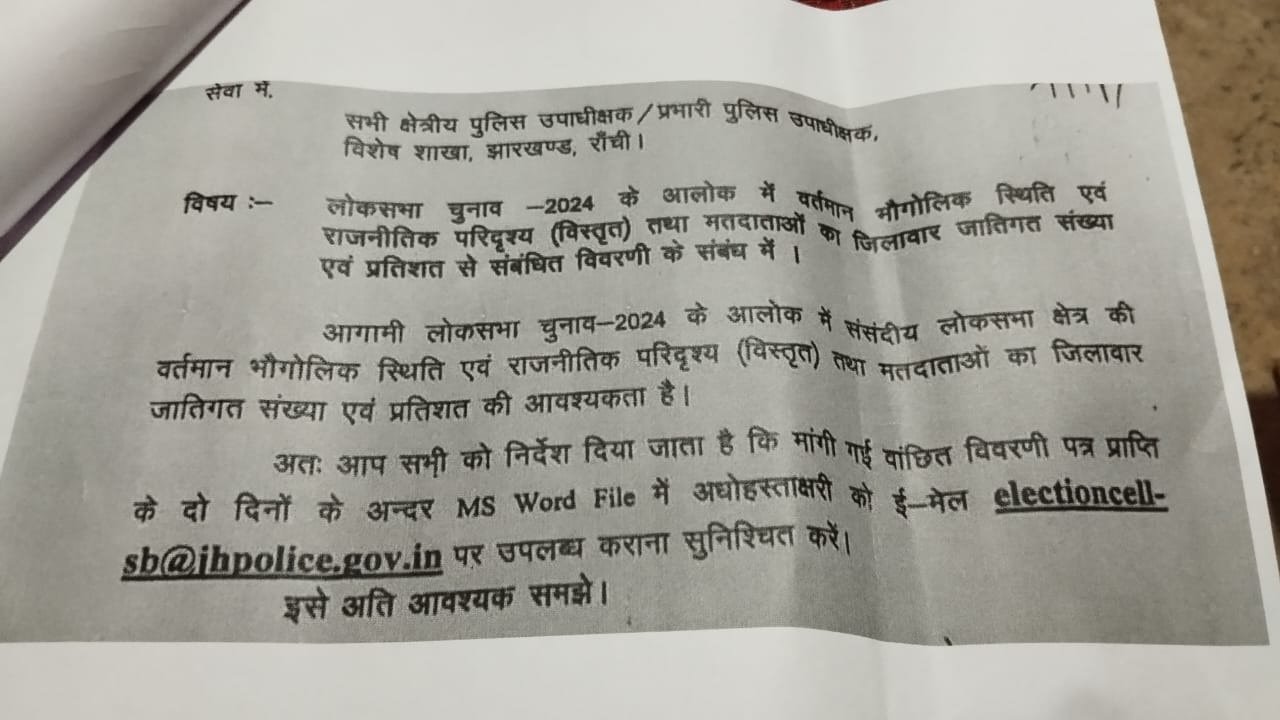 सेवा में,
सभी क्षेत्रीय पुलिस उपाधीक्षक/प्रभारी पुलिस उपाधीक्षक,
विशेष शाखा, झारखण्ड, राँची।
विषय :– लोकसभा चुनाव –2024 के आलोक में वर्तमान भौगोलिक स्थिति एवं
राजनीतिक परिदृश्य (विस्तृत) तथा मतदाताओं का जिलावार जातिगत संख्या
एवं प्रतिशत से संबंधित विवरणी के संबंध में ।
आगामी लोकसभा चुनाव–2024 के आलोक में संसंदीय लोकसभा क्षेत्र की
वर्तमान भौगोलिक स्थिति एवं राजनीतिक परिदृश्य (विस्तृत) तथा मतदाताओं का जिलावार
जातिगत संख्या एवं प्रतिशत की आवश्यकता है।
अतः आप सभी को निर्देश दिया जाता है कि मांगी गई वांछित विवरणी पत्र प्राप्ति
के दो दिनों के अन्दर MS Word File में अधोहस्ताक्षरी को ई–मेल electioncell-
sb@jhpolice.gov.in पर उपलब्ध कराना सुनिश्चित करें।
इसे अति आवश्यक समझे।